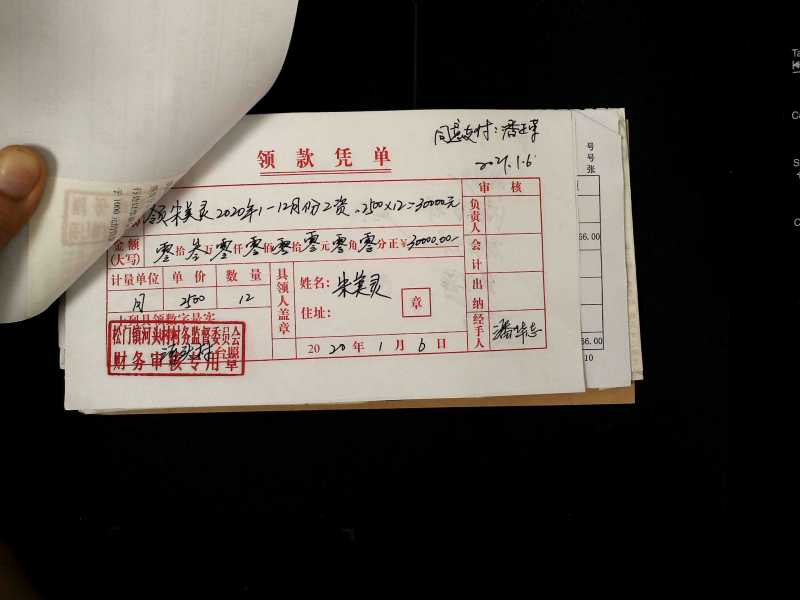 同意支付：潘正学
2021.1.6
领款凭单
审核
领宋美灵2020年1-12月份工资。2500×12=30000元
负责人
金额(大写) 零拾叁万零仟零佰零拾零元零角零分正¥30000.00
会计
计量单位 单价 数量
具领人盖章
姓名：宋美灵
出纳
月 2500 12
住址：
章
上列具领数字是实
经手人
2020年1月6日
松门镇河头村村务监督委员会
台照
财务审核专用章
号
号
张
66.00
66.00
10